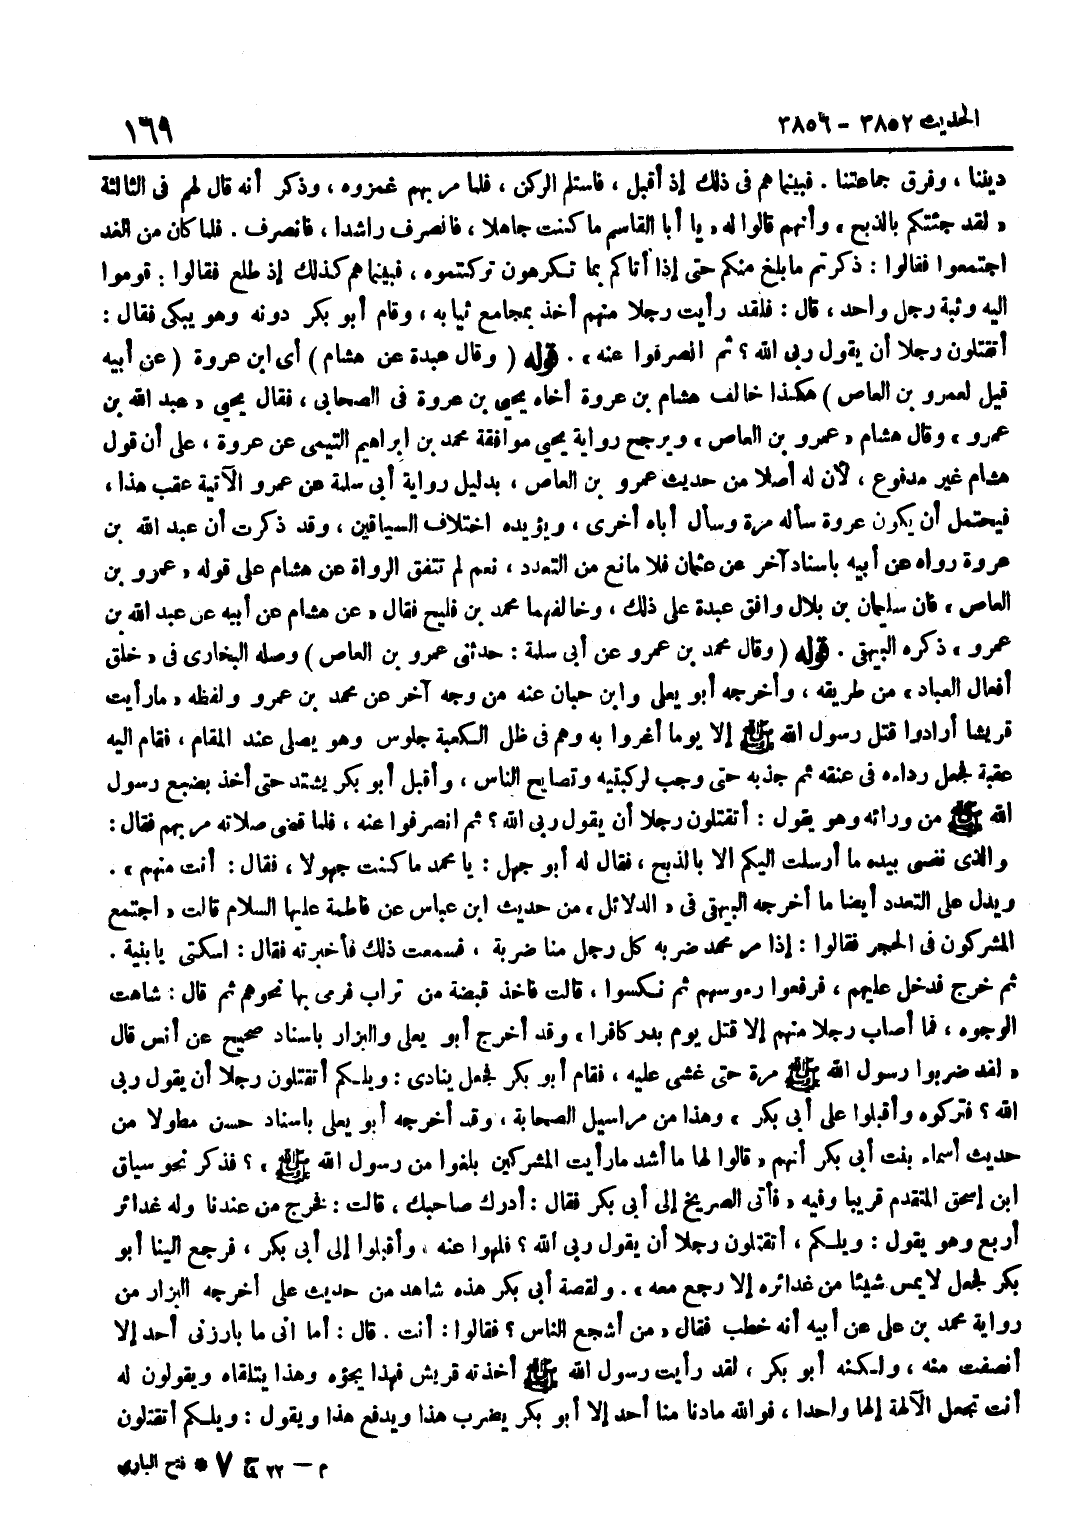 الحديث ٣٨٥٢ - ٣٨٥٦
١٦٩
ديننا ، وفرق جماعتنا . فبينما هم فى ذلك إذ أقبل ، فاستلم الركن ، فلما مر بهم غمزوه ، وذكر أنه قال لهم فى الثالثة
« لقد جئتكم بالذبح » وأنهم قالوا له « يا أبا القاسم ما كنت جاهلا ، فانصرف راشدا ، فانصرف . فلما كان من الغد
اجتمعوا فقالوا : ذكرتم ما بلغ منكم حتى إذا أتاكم بما تكرهون تركتموه ، فبينما هم كذلك إذ طلع فقالوا : قوموا
اليه وثبة رجل واحد ، قال : فلقد رأيت رجلا منهم أخذ بمجامع ثيابه ، وقام أبو بكر دونه وهو يبكى فقال :
أتقتلون رجلا أن يقول ربى الله ؟ ثم انصرفوا عنه » . قوله ( وقال عبدة عن هشام ) أى ابن عروة ( عن أبيه
قيل لعمرو بن العاص ) هكذا خالف هشام بن عروة أخاه يحيى بن عروة فى الصحابى ، فقال يحيى « عبد الله بن
عمرو » وقال هشام « عمرو بن العاص » ويرجح رواية يحيى موافقة محمد بن ابراهيم التيمى عن عروة ، على أن قول
هشام غير مدفوع ، لأن له أصلا من حديث عمرو بن العاص ، بدليل رواية أبى سلمة عن عمرو الآتية عقب هذا ،
فيحتمل أن يكون عروة سأله مرة وسأل أباه أخرى ، ويؤيده اختلاف السياقين ، وقد ذكرت أن عبد الله بن
عروة رواه عن أبيه باسناد آخر عن عثمان فلا مانع من التعدد ، نعم لم تتفق الرواة عن هشام على قوله « عمرو بن
العاص » فان سليمان بن بلال وافق عبدة على ذلك ، وخالفهما محمد بن فليح فقال « عن هشام عن أبيه عن عبد الله بن
عمرو » ذكره البيهقى . قوله ( وقال محمد بن عمرو عن أبى سلمة : حدثنى عمرو بن العاص ) وصله البخارى فى « خلق
أفعال العباد » من طريقه ، وأخرجه أبو يعلى وابن حبان عنه من وجه آخر عن محمد بن عمرو ولفظه « ما رأيت
قريشا أرادوا قتل رسول الله ﷺ إلا يوما أغروا به وهم فى ظل الكعبة جلوس وهو يصلى عند المقام ، فقام اليه
عقبة فجعل رداءه فى عنقه ثم جذبه حتى وجب لركبتيه وتصايح الناس ، وأقبل أبو بكر يشتد حتى أخذ بضبع رسول
الله ﷺ من ورائه وهو يقول : أتقتلون رجلا أن يقول ربى الله ؟ ثم انصرفوا عنه ، فلما قضى صلاته مر بهم فقال :
والذى نفسى بيده ما أرسلت اليكم الا بالذبح ، فقال له أبو جهل : يا محمد ما كنت جهولا ، فقال : أنت منهم » .
ويدل على التعدد أيضا ما أخرجه البيهقى فى « الدلائل » من حديث ابن عباس عن فاطمة عليها السلام قالت « اجتمع
المشركون فى الحجر فقالوا : إذا مر محمد ضربه كل رجل منا ضربة ، فسمعت ذلك فأخبرته فقال : اسكتى يا بنية .
ثم خرج فدخل عليهم ، فرفعوا رءوسهم ثم نكسوا ، قالت فاخذ قبضة من تراب فرمى بها نحوهم ثم قال : شاهت
الوجوه ، فما أصاب رجلا منهم إلا قتل يوم بدر كافرا » وقد أخرج أبو يعلى والبزار باسناد صحيح عن أنس قال
« لقد ضربوا رسول الله ﷺ مرة حتى غشى عليه ، فقام أبو بكر فجعل ينادى : ويلكم أتقتلون رجلا أن يقول ربى
الله ؟ فتركوه وأقبلوا على أبى بكر » وهذا من مراسيل الصحابة ، وقد أخرجه أبو يعلى باسناد حسن مطولا من
حديث أسماء بنت أبى بكر أنهم « قالوا لها ما أشد ما رأيت المشركين بلغوا من رسول الله ﷺ » ؟ فذكر نحو سياق
ابن إسحق المتقدم قريبا وفيه « فأتى الصريخ إلى أبى بكر فقال : أدرك صاحبك ، قالت : فخرج من عندنا وله غدائر
أربع وهو يقول : ويلكم ، أتقتلون رجلا أن يقول ربى الله ؟ فلهوا عنه ، وأقبلوا إلى أبى بكر ، فرجع الينا أبو
بكر فجعل لا يمس شيئا من غدائره إلا رجع معه » . ولقصة أبى بكر هذه شاهد من حديث على أخرجه البزار من
رواية محمد بن على عن أبيه أنه خطب فقال « من أشجع الناس ؟ فقالوا : أنت . قال : أما انى ما بارزنى أحد إلا
أنصفت منه ، ولكنه أبو بكر ، لقد رأيت رسول الله ﷺ أخذته قريش فهذا يجؤه وهذا يتلقاه ويقولون له
أنت تجعل الآلهة إلها واحدا ، فوالله ما دنا منا أحد إلا أبو بكر يضرب هذا ويدفع هذا ويقول : ويلكم أتقتلون
م — ٢٢ ج ٧ * فتح البارى